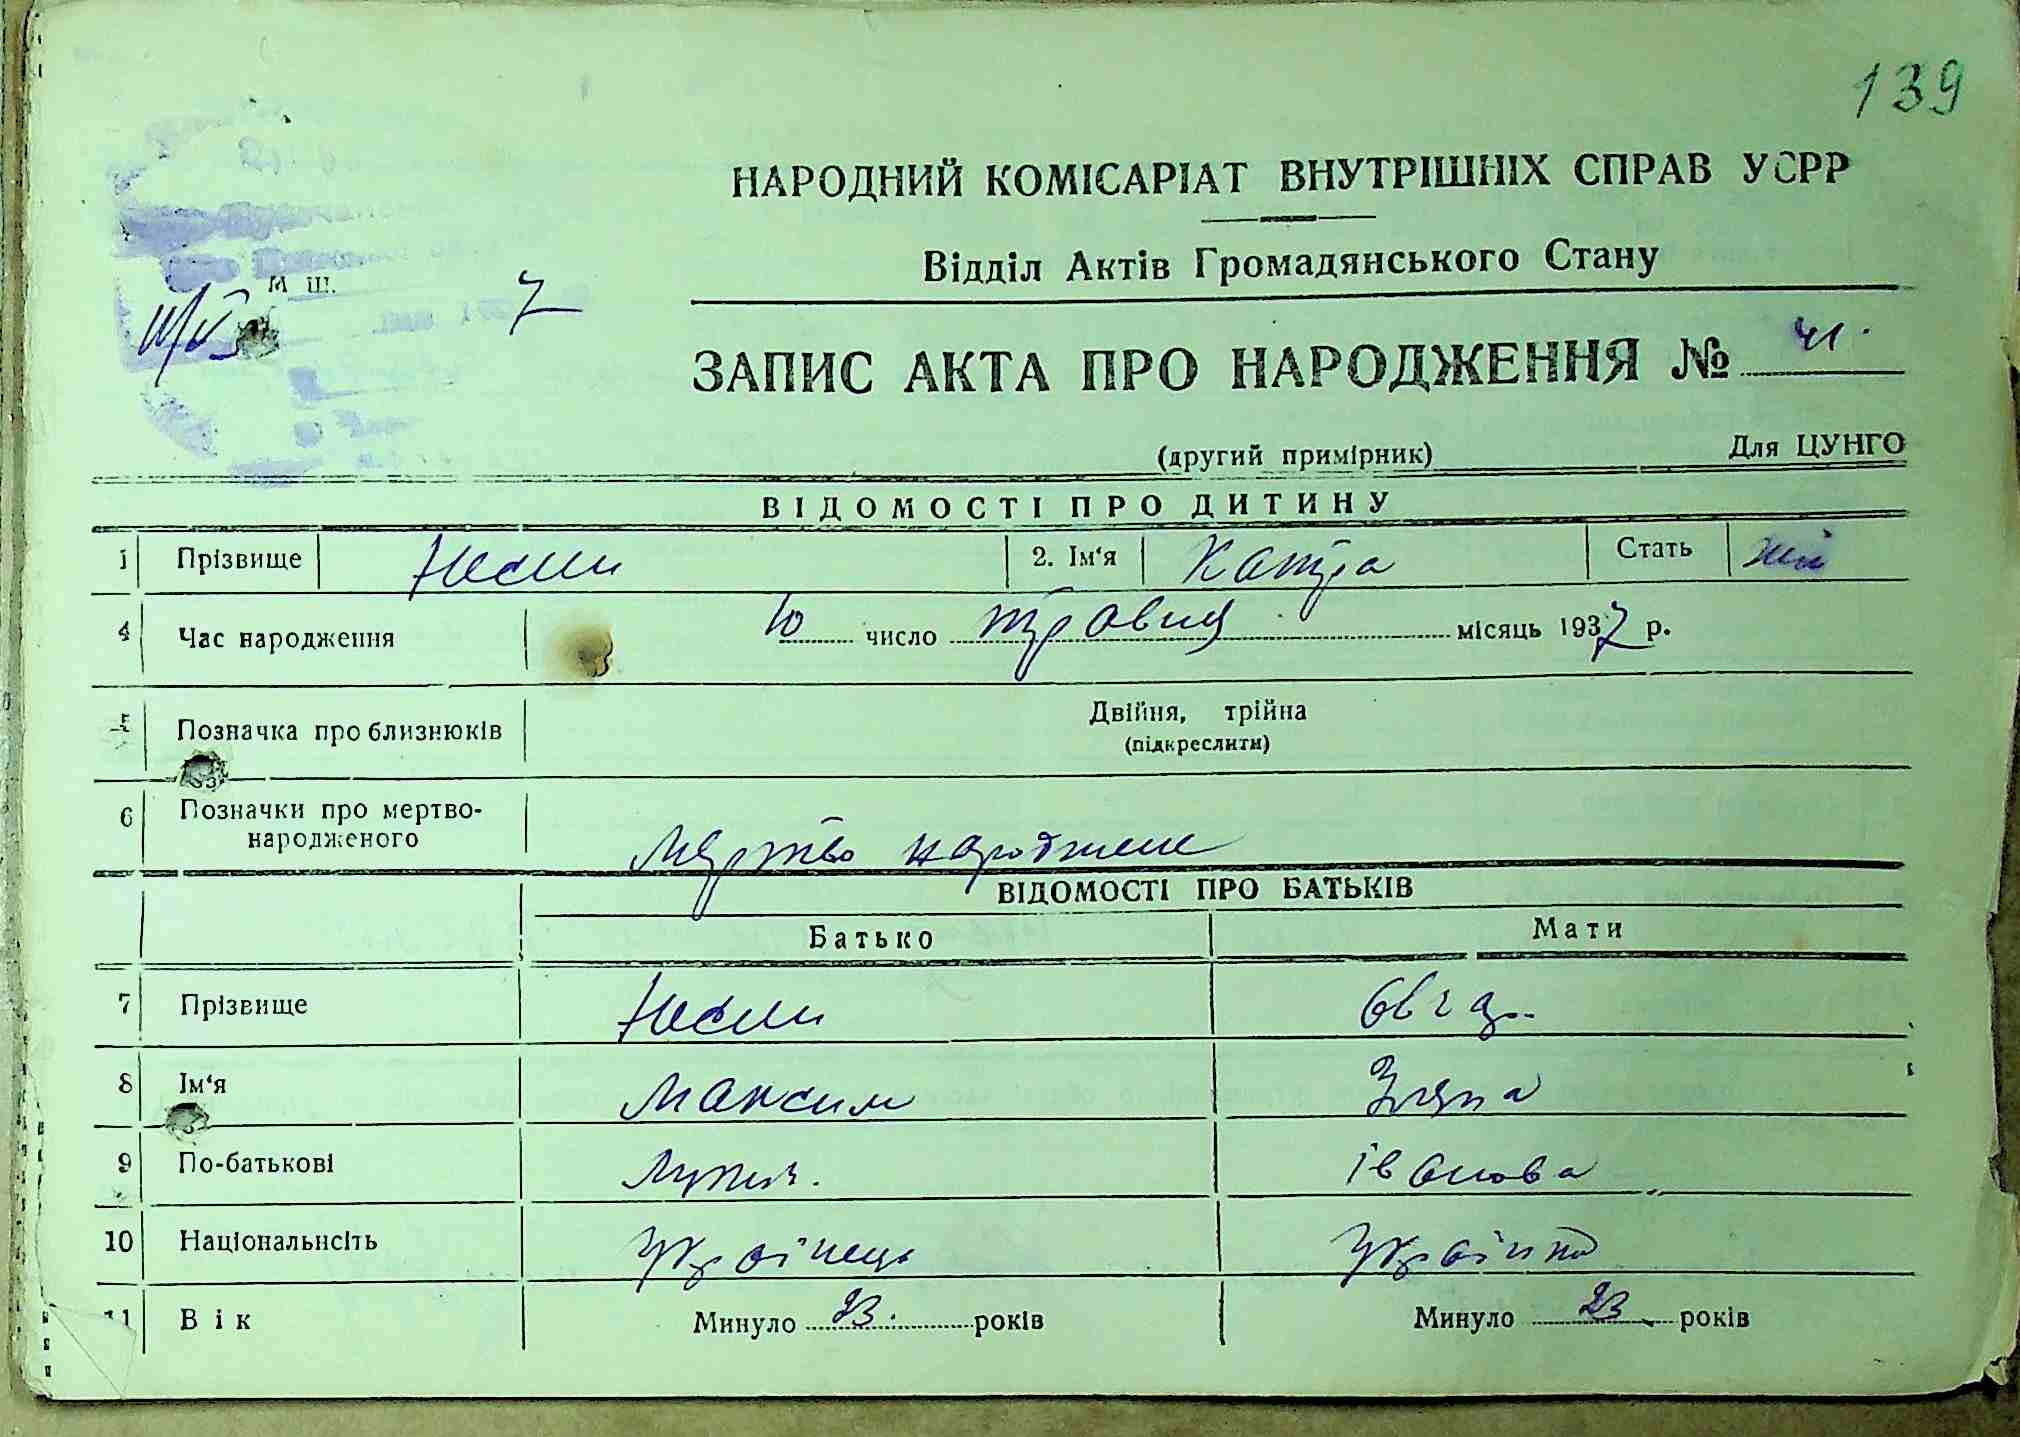 139
НАРОДНИЙ КОМІСАРІАТ ВНУТРІШНІХ СПРАВ УСРР
Відділ Актів Громадянського Стану
М Ш. 7
ЗАПИС АКТА ПРО НАРОДЖЕННЯ № 41.
(другий примірник) Для ЦУНГО
ВІДОМОСТІ ПРО ДИТИНУ
1 Прізвище 2. Ім‘я Катря Стать жін
4 Час народження 10 число травня місяць 1937 р.
5 Позначка про близнюків Двійня, трійна
(підкреслити)
6 Позначки про мертво-
народженого Мертво народжене
ВІДОМОСТІ ПРО БАТЬКІВ
Батько Мати
7 Прізвище
8 Ім‘я Максим
9 По-батькові Івановна
10 Національнсіть Українець Українка
11 Вік Минуло 23. років Минуло 23 років